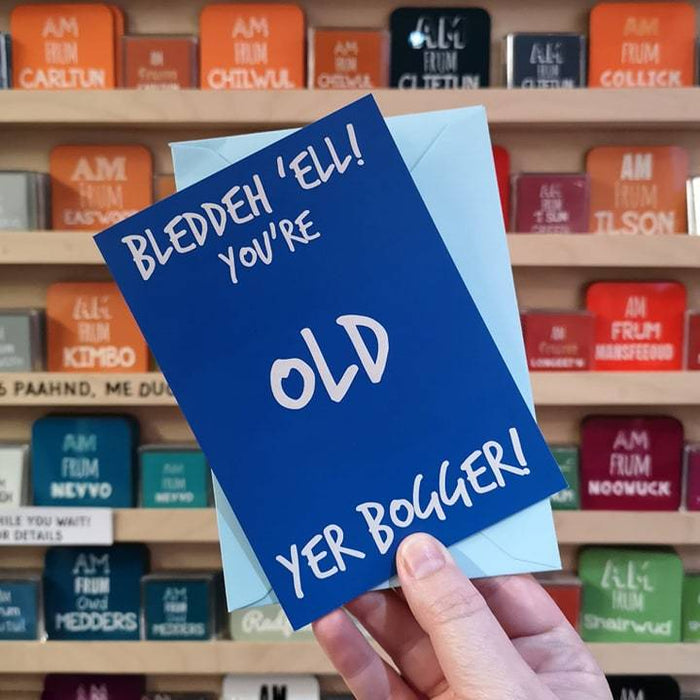 AM
FRUM
CARLTUN
AM
FRUM
CHILWUL
AM
FRUM
CHILWUL
AM
FRUM
CLIFTUN
AM
FRUM
AM
FRUM
COLLICK
AM
FRUM
EASWOOD
BLEDDEH 'ELL!
YOU'RE
OLD
YER BOGGER!
AM
FRUM
ILSON
AM
FRUM
KIMBO
AM
FRUM
MANSFEEOUD
PAAHND, ME DU
AM
FRUM
NEVVO
AM
FRUM
NEVVO
AM
FRUM
NOOWUCK
ILE YOU WAIT!
R DETAILS
AM
FRUM
Owd
MEDDERS
AM
FRUM
Owd
MEDDERS
AM
FRUM
Shairwud
AM
AM